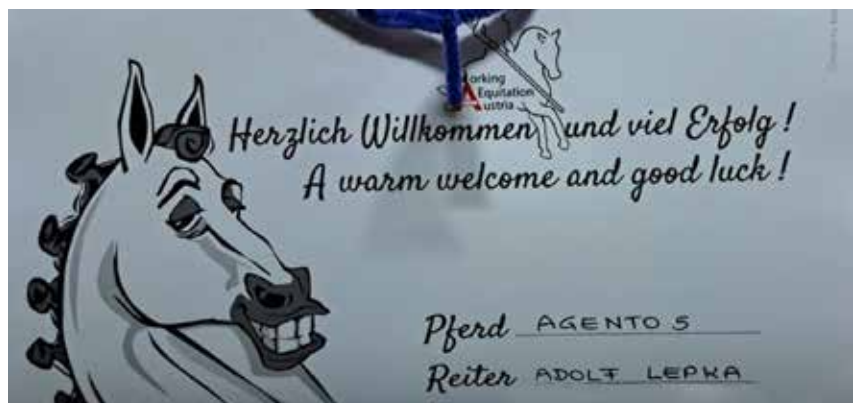 Working
Equitation
Austria
Herzlich Willkommen und viel Erfolg !
A warm welcome and good luck !
Pferd AGENTO S
Reiter ADOLF LEPKA